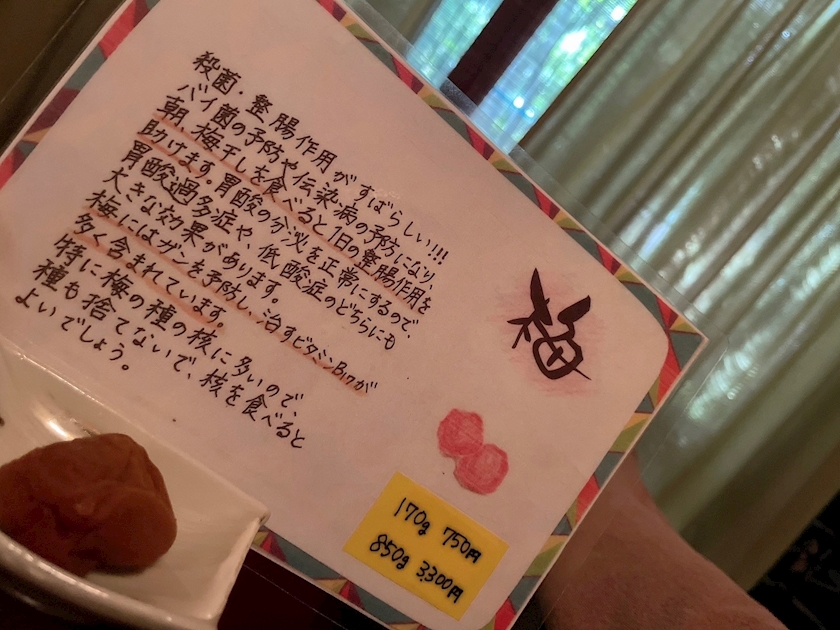 殺菌・整腸作用がすばらしい!!!
バイ菌の予防や伝染病の予防になり、
朝、梅干しを食べると1日の整腸作用を
助けます。胃酸の分泌を正常にするので、
胃酸過多症や、低酸症のどちらにも
大きな効果があります。
梅にはガンを予防し、治すビタミンB17が
多く含まれています。
特に梅の種の核に多いので、
種も捨てないで、核を食べると
よいでしょう。
梅
170g 750円
850g 3,300円